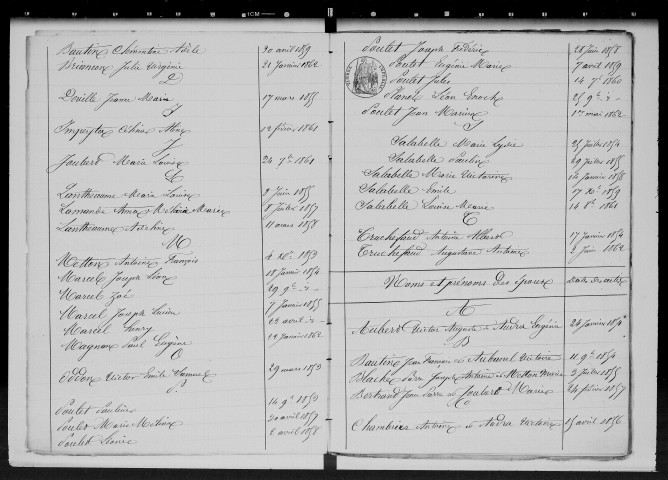 Bautin Clémentine Adèle 20 avril 1859
Briançon Julie Virginie 21 Janvier 1862
D
Deville Jeanne Marie 17 mars 1855
I
12 février 1861
J
Joubert Marie Louise 24 7bre 1861
L
Lanthéaume Marie Louise 2 Juin 1855
Lamande Anna Victoria 8 Juillet 1857
Lanthéaume Adeline 11 mars 1858
M
Metton Antoine François 4 Xbre 1853
Marcel Joseph Léon 18 Janvier 1854
Marcel Zoé 29 9bre
Marcel Joseph 7 Janvier 1855
Marcel Henry 22 avril
Magnan Paul Eugène 22 Janvier 1862
O
Oddon Victor Emile Samuel 29 mars 1853
P
Poulet Pauline 14 9bre 1853
Poulet Marie 20 avril 1857
Poulet 2 avril 1858
Poulet Joseph Frédéric 28 Juin 1858
Poulet Eugénie Marie 7 avril 1859
Poulet Jules 14 7bre 1860
Planel Léon Enoch 25 9bre
Poulet Jean 1er mai 1862
S
Salabelle Marie Lydie 25 Juillet 1854
Salabelle Paulin 29 Juillet 1855
Salabelle Marie 14 Janvier 1858
Salabelle Emile 17 Xbre 1859
Salabelle Louise Marie 14 8bre 1861
T
Truchefaud Antoine 17 Janvier 1854
Truchefaud Augustine 8 Juin 1862
Noms et prénoms des époux Date des actes
A
Aubert Victor Auguste & Andra Eugénie 24 Janvier 1854
B
Bautin Jean François & Aubanel Victoire 11 9bre 1854
Blache Pierre Joseph & Metton Marie 3 Juillet 1855
Bertrand Jean Pierre & Joubert Marie 24 février 1857
C
Chambrier Antoine & Andra 15 avril 1856